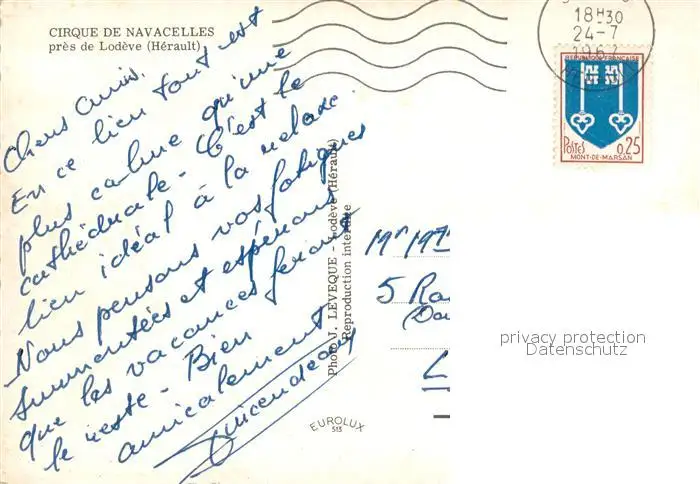 CIRQUE DE NAVACELLES
près de Lodève (Hérault)
Chers amis.
En ce lieu tout est
plus calme qu'une
cathédrale - C'est le
lieu idéal à la relaxe.
Nous pensons vos fatigues
surmontées et espérons
que les vacances feront
le reste - Bien
amicalement
Photo J. LEVEQUE - Lodève (Hérault)
Reproduction interdite
EUROLUX
513
18H30
24-7
1967
REPUBLIQUE FRANÇAISE
POSTES 0,25
MONT-DE-MARSAN
Mr
5
privacy protection
Datenschutz